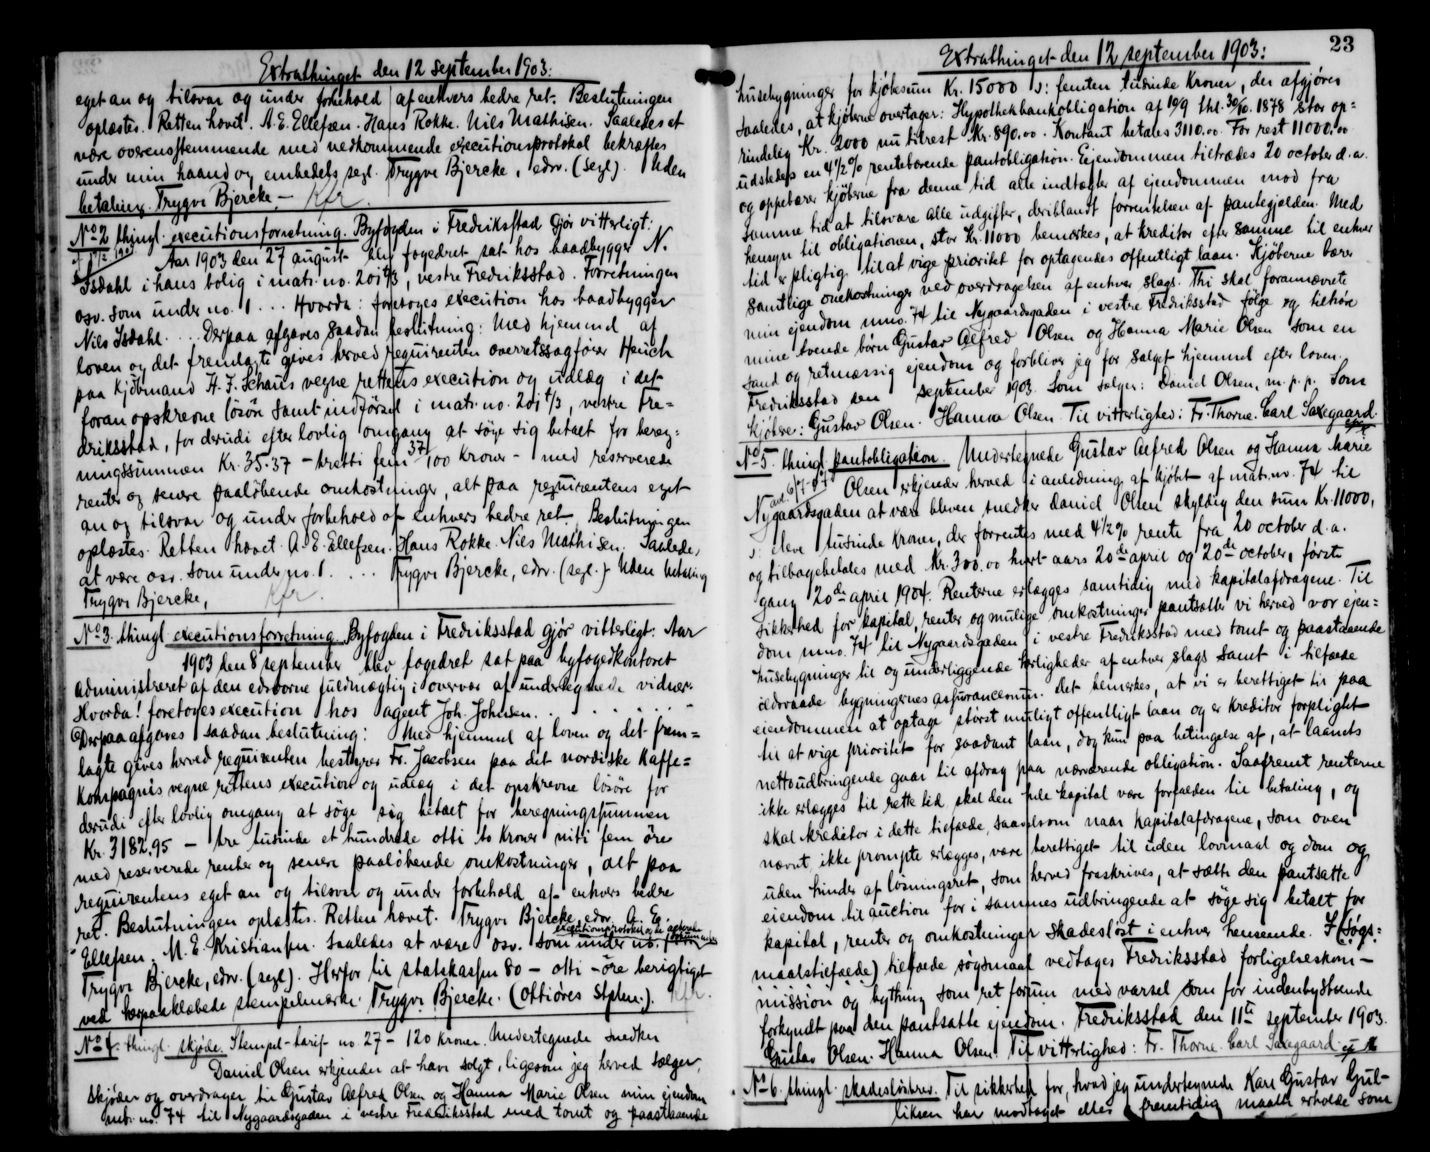 Extrathinget den 12 september 1903:
eget an og tilsvar og under forbehold af enhvers bedre ret. Beslutningen
oplæstes. Retten hævet. A. E. Ellefsen. Hans Rokke. Nils Mathisen. Saaledes at
være overensstemmende med vedkommende executionsprotokol bekræftes
under min haand og embedets segl. Trygve Bjercke, edsv. (segl). Uden
betaling. Trygve Bjercke – Kfr.
No 2 thingl. executionsforretning. Byfogden i Fredriksstad gjør vitterligt:
Aar 1903 den 27 august blev fogedret sat hos baadbygger N.
Isdahl i hans bolig i matr. no. 201 t/3, vestre Fredriksstad. Forretningen
osv. som under no. 1 ... Hvorda: foretoges execution hos baadbygger
Nils Isdahl. ... Derpaa afgaves saadan beslutning: Med hjemmel af
loven og det fremlagte gives herved requirenten overretssagfører Heuch
paa Kjøbmand H. F. Schaus vegne rettens execution og udlæg i det
foran opskrevne løsøre samt indførsel i matr. no. 201 t/3, vestre Fre=
driksstad, for derudi efter lovlig omgang at søge sig betalt for bereg=
ningssummen Kr. 35.37 – tretti fem 37/100 kroner – med reserverede
renter og senere paaløbende omkostninger, alt paa requirentens eget
an og tilsvar og under forbehold af enhvers bedre ret. Beslutningen
oplæstes. Retten hævet. A. E. Ellefsen. Hans Rokke. Nils Mathisen. Saaledes
at være osv. som under no. 1. ... Trygve Bjercke, edsv. (segl.) Uden betaling
Trygve Bjercke, Kfr.
No 3. thingl. executionsforretning. Byfogden i Fredriksstad gjør vitterligt: Aar
1903 den 8 september blev fogedret sat paa byfogedkontoret
administreret af den edsvorne fuldmægtig i overvær af undertegnede vidner.
Hvorda! foretoges execution hos agent Joh. Johnsen. . . . . . . .
Derpaa afgaves saadan beslutning: Med hjemmel af loven og det frem=
lagte gives herved requirenten bestyrer Fr. Jacobsen paa det nordiske Kaffe=
kompagnis vegne rettens execution og udlæg i det opskrevne løsøre for
derudi efter lovlig omgang at søge sig betalt for beregningssummen
Kr. 3182.95 – tre tusinde et hundrede otti to kroner niti fem øre
med reserverede renter og senere paaløbende omkostninger, alt paa
requirentens eget an og tilsvar og under forbehold af enhvers bedre
ret. Beslutningen oplæstes. Retten hævet. Trygve Bjercke, edsv. A. E.
Ellefsen. M. E. Kristiansen. Saaledes at være osv. som under no.
Trygve Bjercke, edsv. (segl). Herfor til statskassen 80 – otti – øre berigtiget
ved herpaaklæbede stempelmærke. Trygve Bjercke. (Ottiøres stplm.). Kfr.
No 4. thingl. skjøde. Stempel-tarif no 27 – 120 kroner. Undertegnede snedker
Daniel Olsen erkjender at have solgt, ligesom jeg herved sælger,
skjøder og overdrager til Gustav Alfred Olsen og Hanna Marie Olsen min eiendom
mtr. no. 74 til Nygaardsgaden i vestre Fredriksstad med tomt og paastaaende
Extrathinget den 12 september 1903: 23
husebygninger for kjøbesum Kr. 15000 ɔ: femten tusinde kroner, der afgjøres
saaledes, at kjøberne overtager: Hypothekbankobligation af 10/9 thl. 30/10 1878 stor op=
rindelig Kr. 2000 nu tilrest Kr. 890.00. Kontant betales 3110.00. For rest 11000.00
udstedes en 4 1/2 % rentebærende pantobligation. Eiendommen tiltrædes 20 october d. a.
og oppebærer kjøberne fra denne tid alle indtægter af ejendommen mod fra
samme tid at tilsvare alle udgifter, deriblandt forrentelsen af pantegjælden. Med
hensyn til obligationen, stor Kr. 11000 bemærkes, at kreditor efter samme til enhver
tid er pligtig til at vige prioritet for optagendes offentligt laan. Kjøberne bærer
samtlige omkostninger ved overdragelsen af enhver slags. Thi skal forannævnte
min ejendom mno. 74 til Nygaardsgaden i vestre Fredriksstad følge og tilhøre
mine tvende børn Gustav Alfred Olsen og Hanna Marie Olsen som en
sand og retmæssig ejendom og forbliver jeg for salget hjemmel efter loven.
Fredriksstad den september 1903. Som sælger: Daniel Olsen, m. p. p. Som
kjøbere: Gustav Olsen. Hanna Olsen. Til vitterlighed: Fr. Thorne. Carl Saxegaard.
No 5. thingl. pantobligation. Undertegnede Gustav Alfred Olsen og Hanna Marie
Olsen erkjender herved i anledning af kjøbet af matr. no. 74 til
Nygaardsgaden at være bleven snedker Daniel Olsen skyldig den sum Kr. 11000,
ɔ: elleve tusinde kroner, der forrentes med 4 1/2 % rente fra 20 october d. a.
og tilbagebetales med Kr. 300.00 hvert aars 20de april og 20de october, første
gang 20de april 1904. Renterne erlægges samtidig med kapitalafdragene. Til
sikkerhed for kapital, renter og mulige omkostninger pantsætter vi herved vor ejen=
dom mno. 74 til Nygaardsgaden i vestre Fredriksstad med tomt og paastaaende
husebygninger til og underliggende herligheder af enhver slags samt i tilfælde
ildsvaade bygningernes assurancesum. Det bemærkes, at vi er berettiget til paa
eiendommen at optage størst muligt offentligt laan og er kreditor forpligtet
til at vige prioritet for saadant laan, dog kun paa betingelse af, at laanets
nettoudbringende gaar til afdrag paa nærværende obligation. Saafremt renterne
ikke erlægges til rette tid, skal den hele kapital være forfalden til betaling, og
skal kreditor i dette tilfælde, saavelsom naar kapitalafdragene, som oven
nævnt, ikke prompte erlægges, være berettiget til uden lovmaal og dom og
uden hinder af løsningsret, som herved fraskrives, at sætte den pantsatte
eiendom til auction for i sammes udbringende at søge sig betalt for
kapital, renter og omkostninger skadesløst i enhver henseende. I (søgs=
maalstilfælde) tilfælde søgsmaal vedtages Fredriksstad forligelseskom-
mission og bything som ret forum med varsel som for indenbysboende
forkyndt paa den pantsatte ejendom. Fredriksstad den 11te september 1903.
Gustav Olsen. Hanna Olsen. Til vitterlighed: Fr. Thorne. Carl Saxegaard
No 6. thingl. skadesløsbrev. Til sikkerhed for, hvad jeg undertegnede Karl Gustav Gul-
liksen har modtaget eller fremtidig maatte erholde som